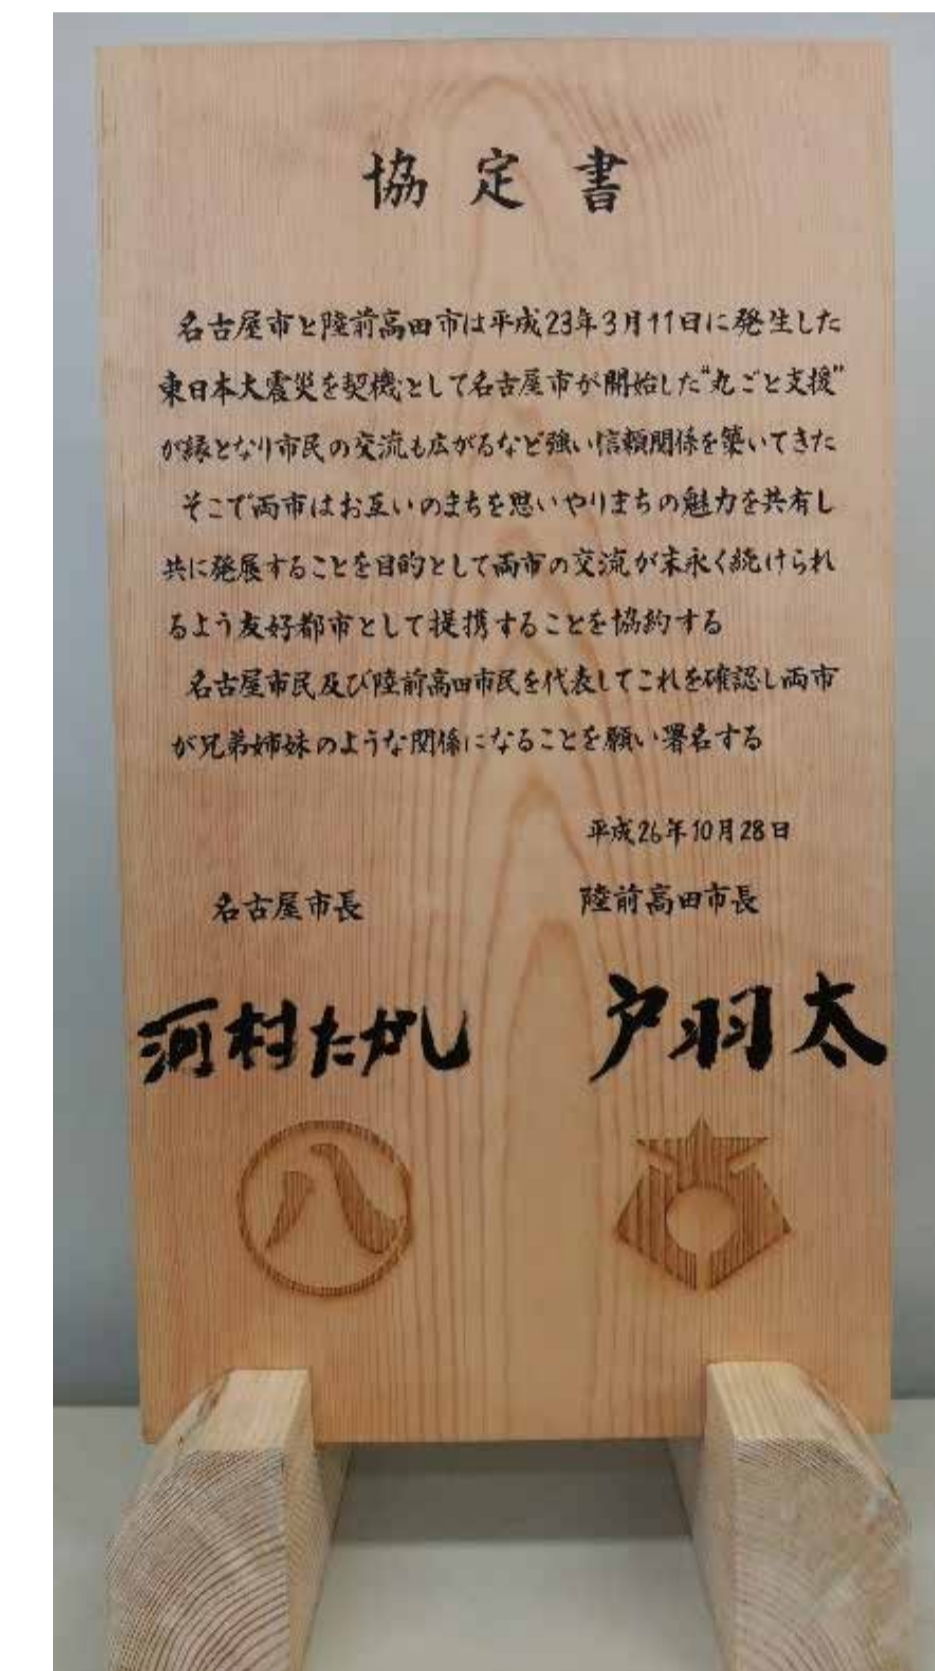 協定書
名古屋市と陸前高田市は平成23年3月11日に発生した
東日本大震災を契機として名古屋市が開始した“丸ごと支援”
が縁となり市民の交流も広がるなど強い信頼関係を築いてきた
そこで両市はお互いのまちを思いやりまちの魅力を共有し
共に発展することを目的として両市の交流が末永く続けられ
るよう友好都市として提携することを協約する
名古屋市民及び陸前高田市民を代表してこれを確認し両市
が兄弟姉妹のような関係になることを願い署名する
平成26年10月28日
名古屋市長
陸前高田市長
河村たかし
戸羽太
八